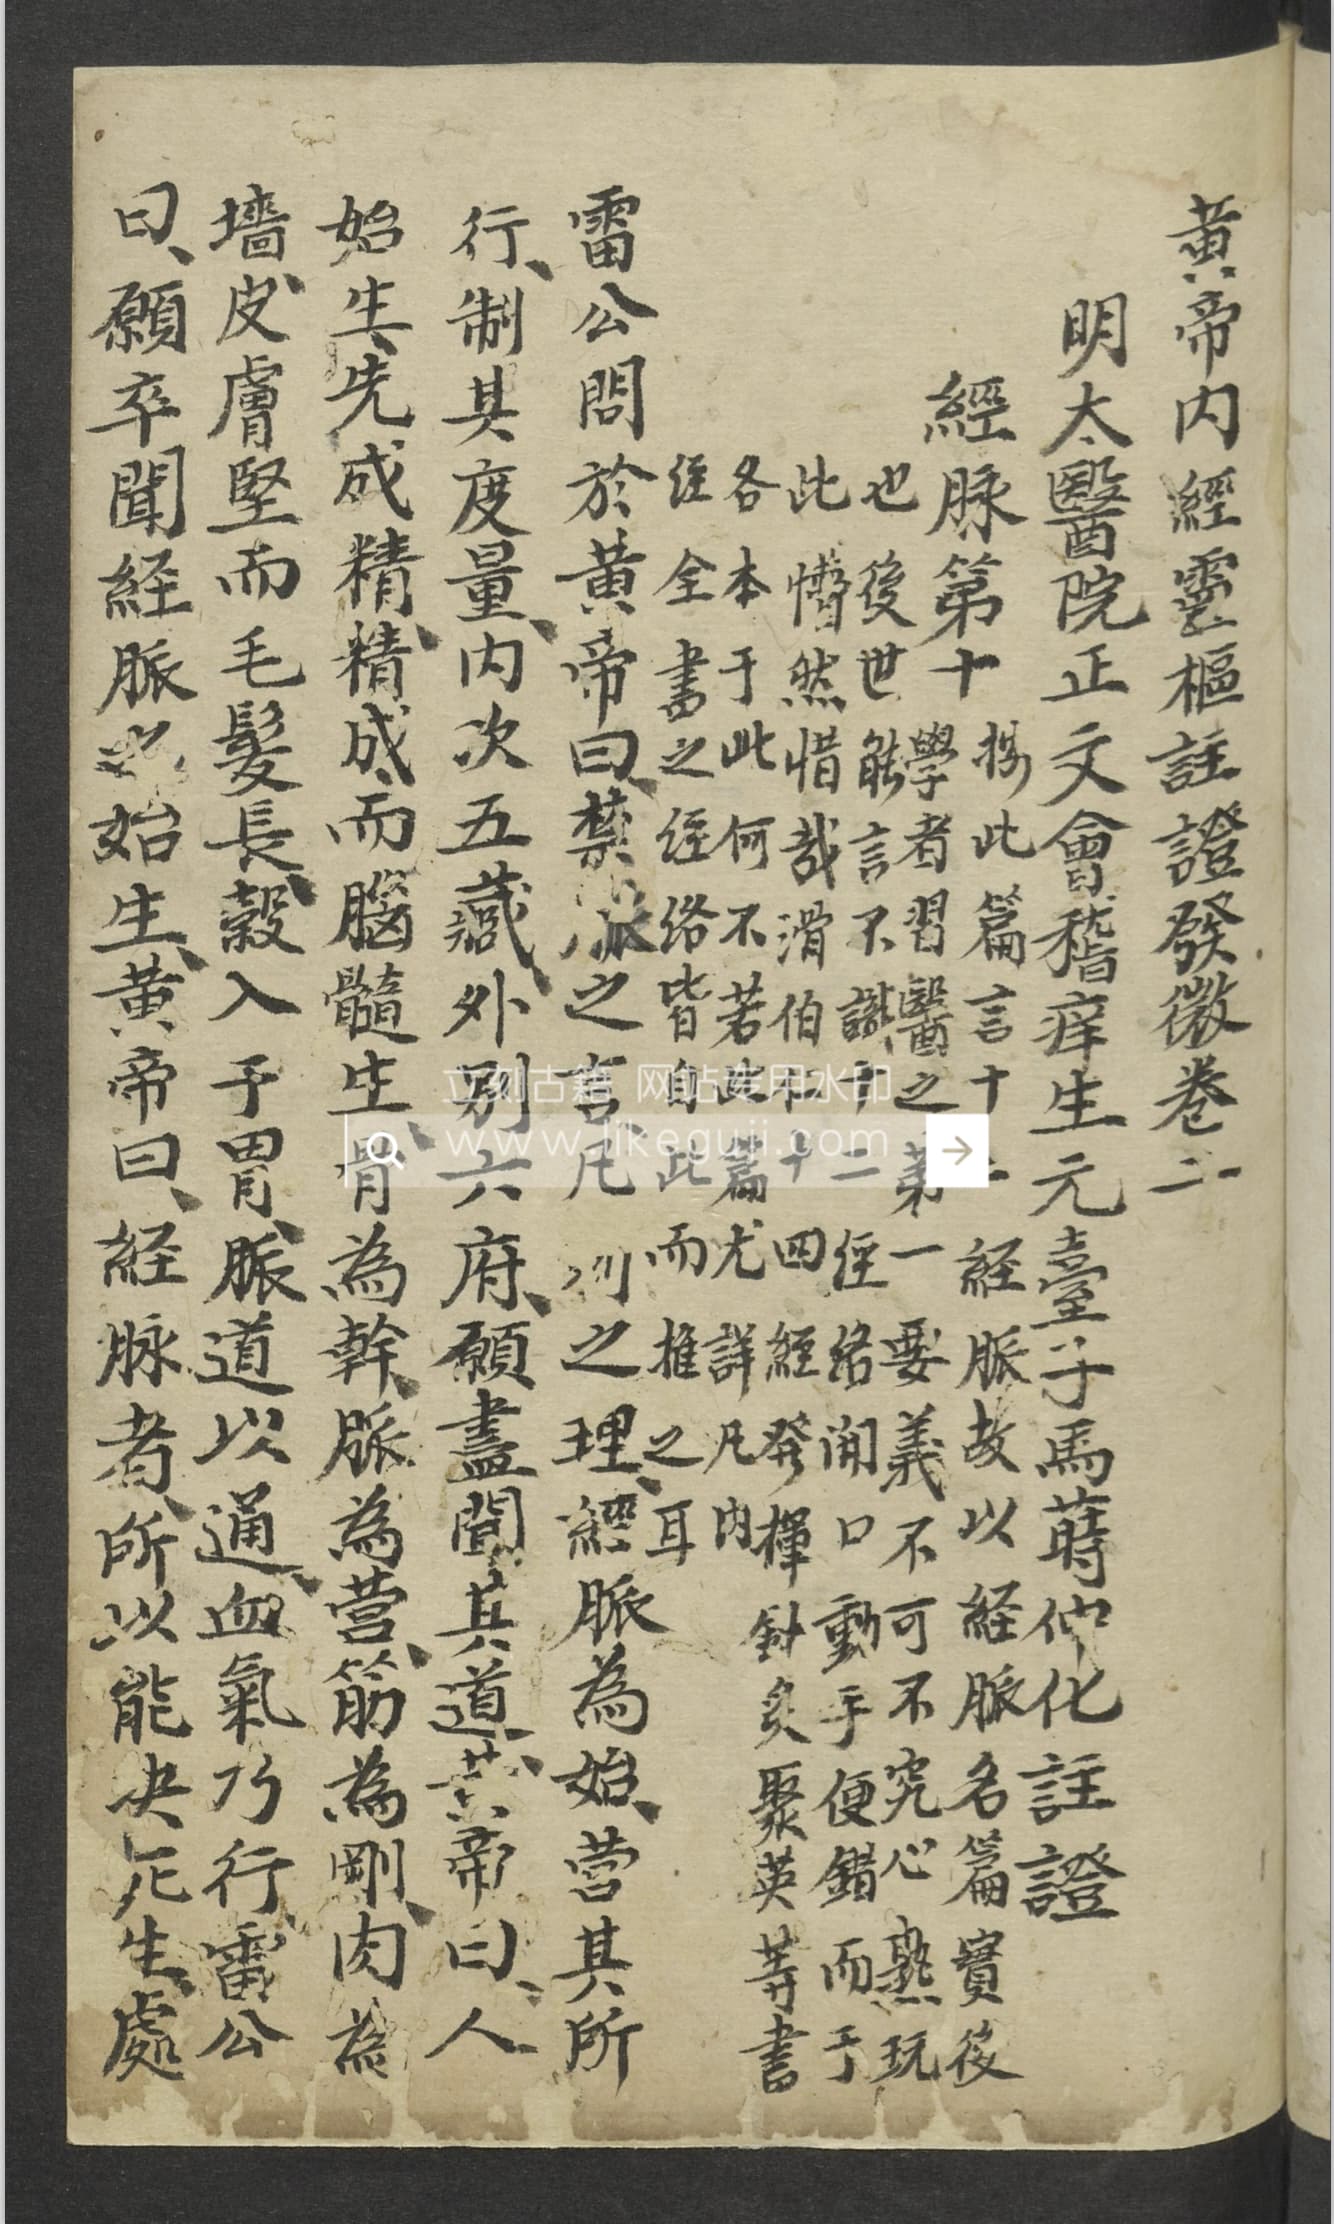 黃帝内經靈樞註證發微卷二
明太醫院正文會稽庠生元臺子馬蒔仲化註證
經脉第十
按此篇言十二経脈故以経脈名篇實後
學者習醫之第一要義不可不究心熟玩
也後世能言不識十二徑絡開口動手便錯而于
此懵然惜哉滑伯仁十四經發揮針灸聚英䓁書
各本于此何不若此篇尤詳凡内
经全書之经络皆自此而推之耳
雷公問於黄帝曰禁脉之言凡刺之理經脈為始营其所
行制其度量内次五藏外別六府願盡聞其道黄帝曰人
始生先成精精成而腦髓生骨為幹脈為营筋為剛肉為
墻皮膚堅而毛髮長穀入于胃脈道以通血氣乃行雷公
曰願卒聞経脈之始生黄帝曰経脉者所以能决死生處
立刻古籍 网站专用水印
www.likeguji.com